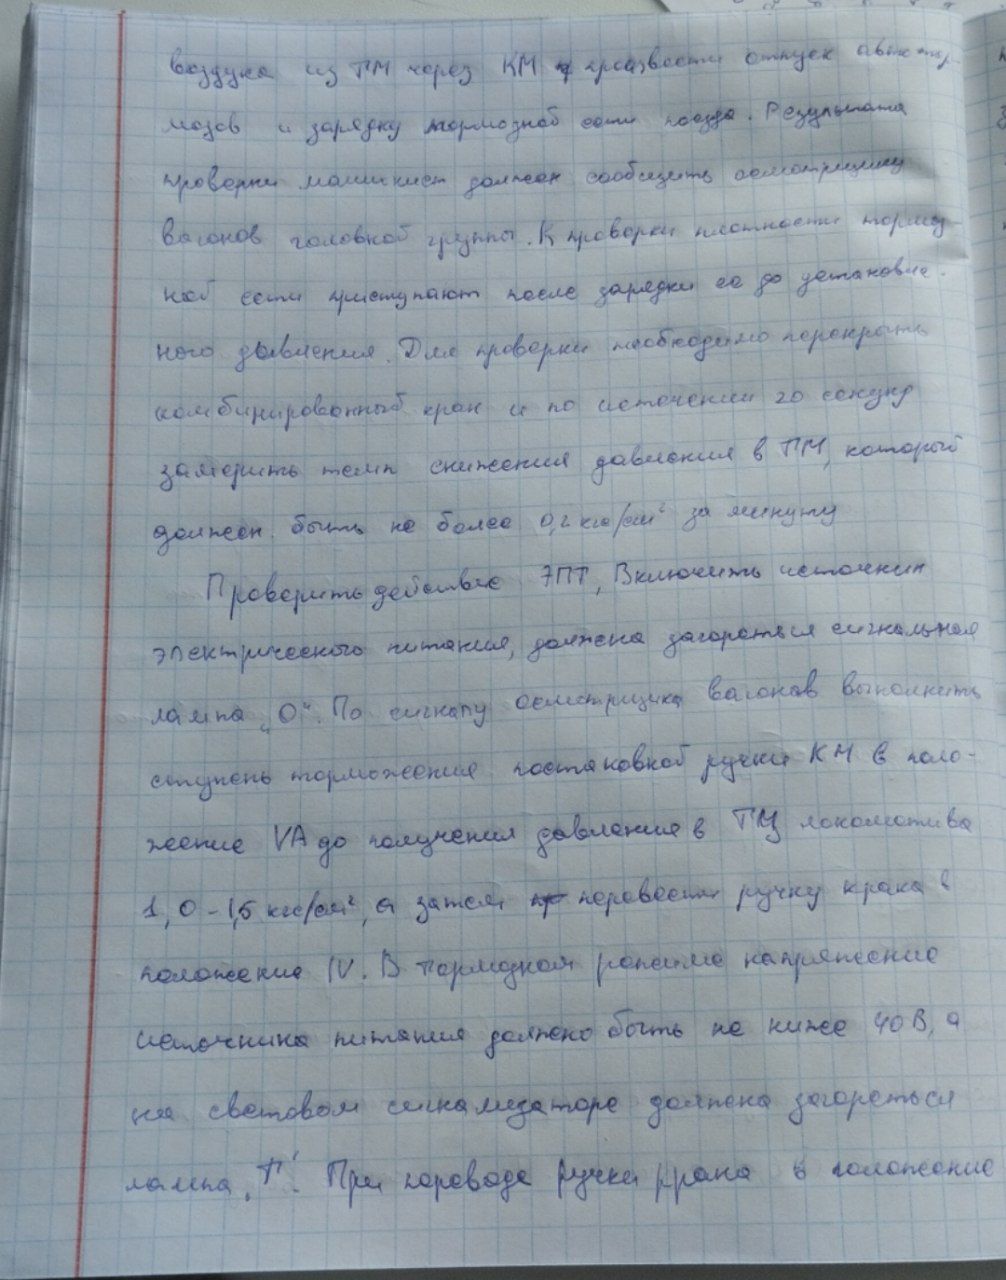 воздуха из ТМ через КМ произвести отпуск автотор-
мозов и зарядку тормозной сети поезда. Результата
проверки машинист должен сообщить осмотрщику
вагонов головной группы. К проверки плотности тормоз
ной сети приступают после зарядки ее до установле-
ного давления. Для проверки необходимо перекрыть
комбинированный кран и по истечении 20 секунд
замерить темп снижения давления в ТМ, который
должен быть не более 0,2 кгс/см² за минуту
Проверить действие ЭПТ, Включить источник
электрического питания, должена загореться сигнальная
лампа „О". По сигналу осмотрщика вагонов выполнить
ступень торможения постановкой ручки КМ в поло-
жение VА до получения давления в ТЦ локомотива
1,0-1,5 кгс/см², а затем перевести ручку крана в
положение IV. В тормозном режиме напряжение
источника питания должно быть не ниже 40В, а
на световом сигнализаторе должена загореться
лампа „Т". При переводе ручки крана в положение